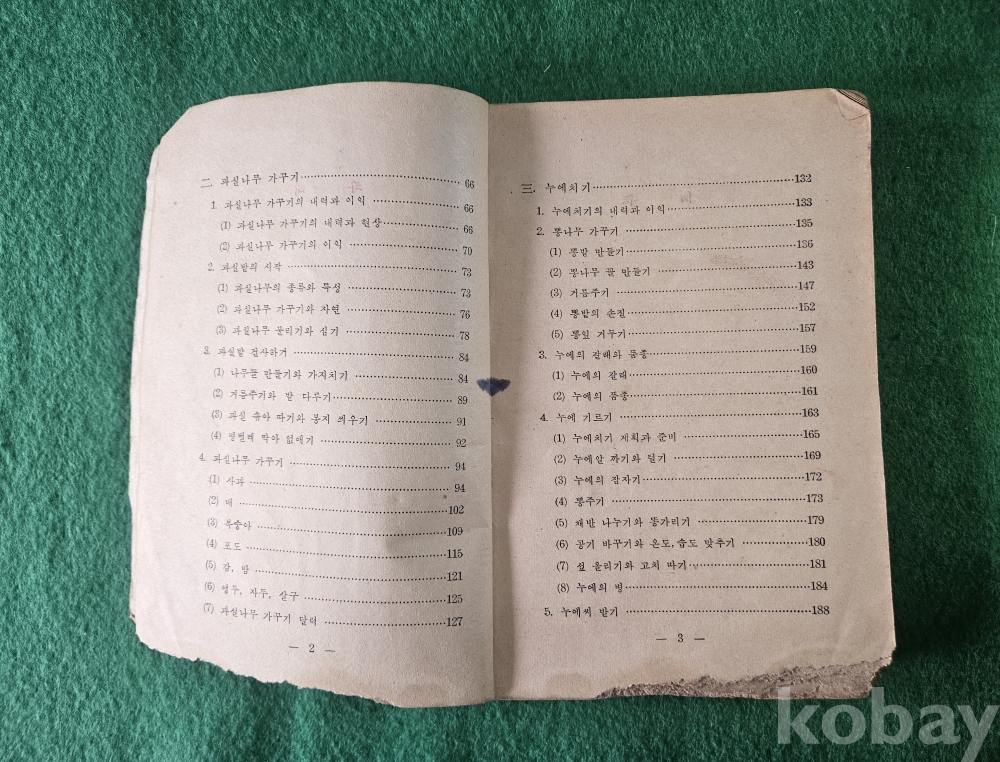 二 과실나무 가꾸기 66
1. 과실나무 가꾸기의 내력과 이익 66
(1) 과실나무 가꾸기의 내력과 현상 66
(2) 과실나무 가꾸기의 이익 70
2. 과실밭의 시작 73
(1) 과실나무의 종류와 특성 73
(2) 과실나무 가꾸기와 자연 76
(3) 과실나무 불리기와 심기 78
3. 과실밭 건사하기 84
(1) 나무꼴 만들기와 가지치기 84
(2) 거름주기와 밭 다루기 89
(3) 과실 솎아 따기와 봉지 씌우기 91
(4) 병벌레 막아 없애기 92
4. 과실나무 가꾸기 94
(1) 사과 94
(2) 배 102
(3) 복숭아 109
(4) 포도 115
(5) 감, 밤 121
(6) 앵두, 자두, 살구 125
(7) 과실나무 가꾸기 달력 127
— 2 —
三. 누에치기 132
1. 누에치기의 내력과 이익 133
2. 뽕나무 가꾸기 135
(1) 뽕밭 만들기 136
(2) 뽕나무 꼴 만들기 143
(3) 거름주기 147
(4) 뽕밭의 손질 152
(5) 뽕잎 거두기 157
3. 누에의 갈래와 품종 159
(1) 누에의 갈래 160
(2) 누에의 품종 161
4. 누에 기르기 163
(1) 누에치기 계획과 준비 165
(2) 누에알 까기와 떨기 169
(3) 누에의 잠자기 172
(4) 뽕주기 173
(5) 채반 나누기와 똥가리기 179
(6) 공기 바꾸기와 온도, 습도 맞추기 180
(7) 섶 올리기와 고치 따기 181
(8) 누에의 병 184
5. 누에씨 받기 188
— 3 —
kobay